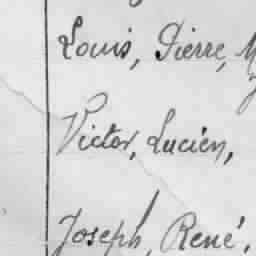 Louis, Pierre,
Victor, Lucien,
Joseph, René,